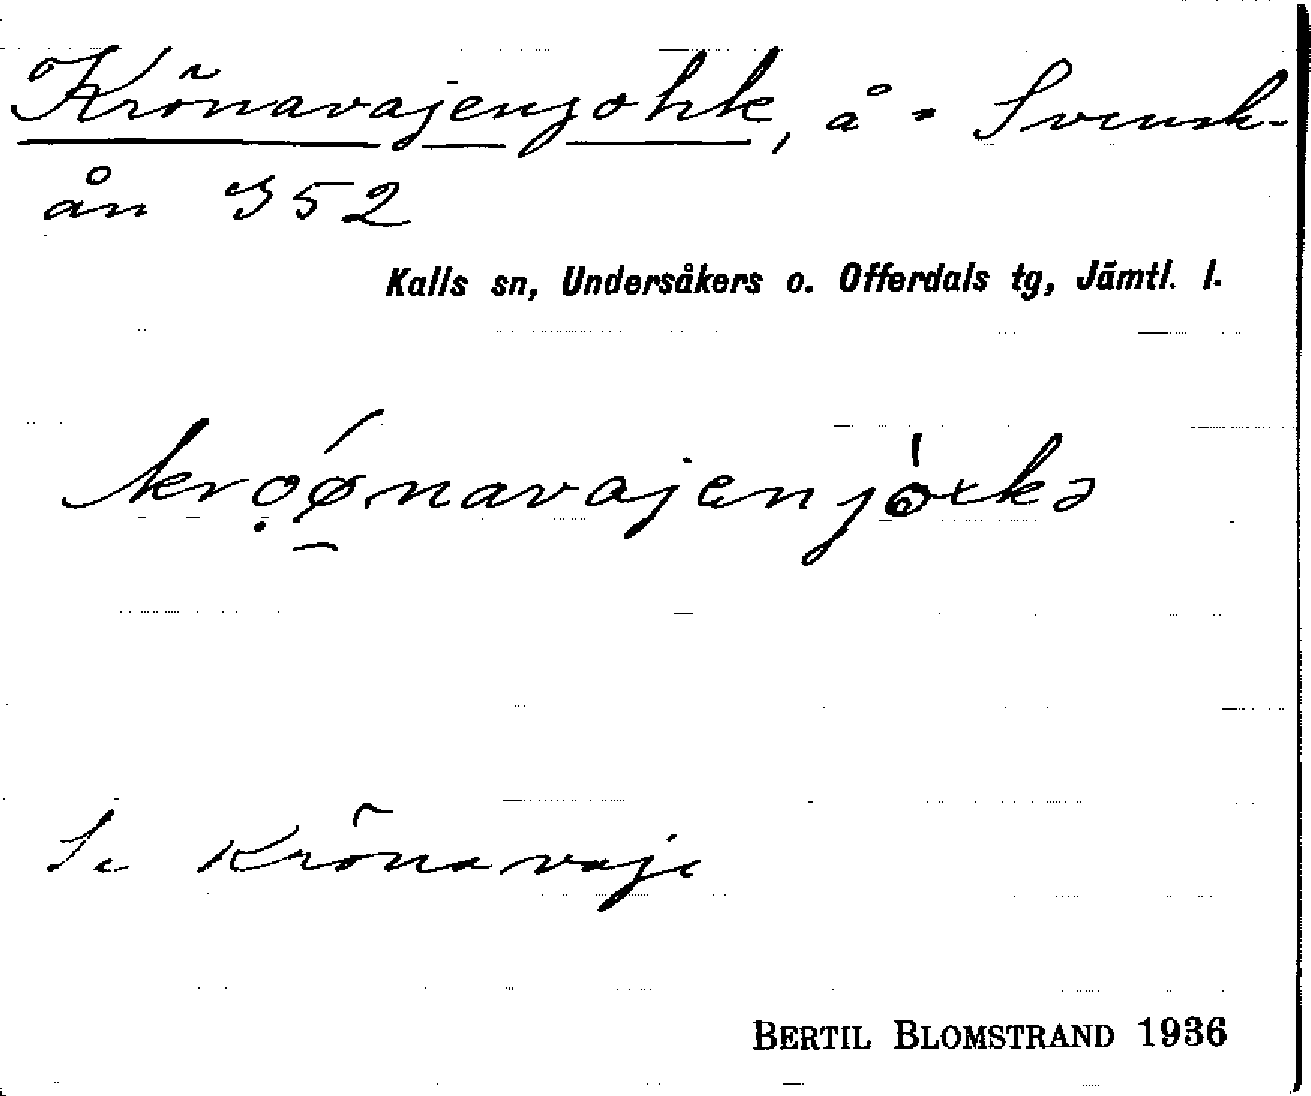 Krönavajenjohke, å = Svensk-
ån 352
Kalls sn, Undersåkers o. Offerdals tg, Jämtl. l.
Se Krönavaje
BERTIL BLOMSTRAND 1936